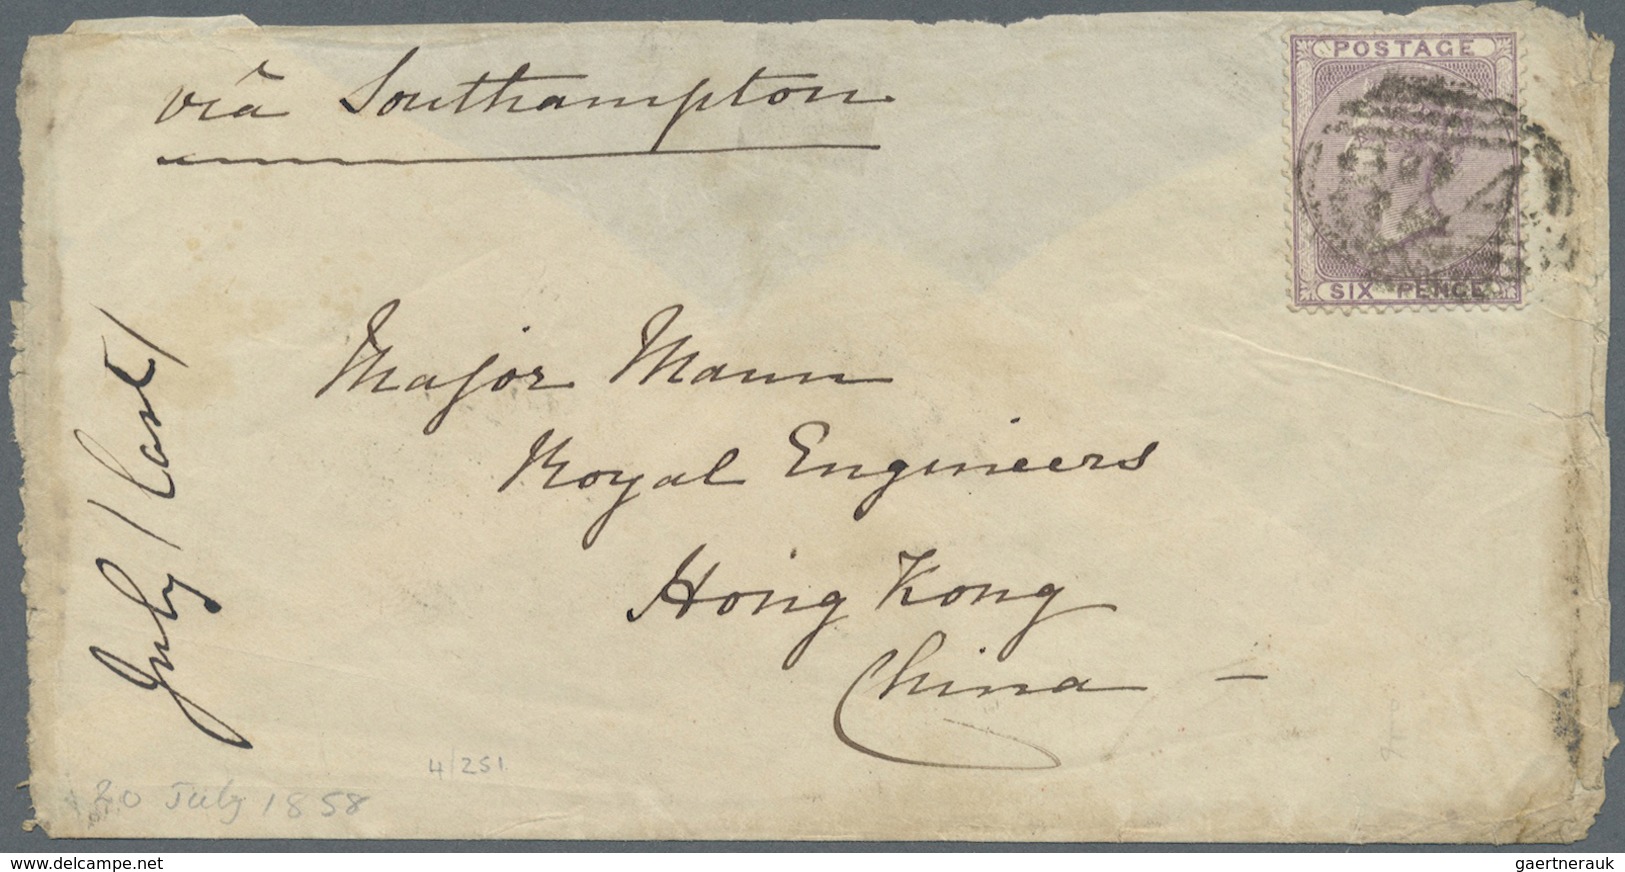 viâ Southampton
POSTAGE
SIX PENCE
Major Mann
Royal Engineers
Hong Kong
China –
July /
4/251
20 July 1858
www.delcampe.net
gaertnerauk